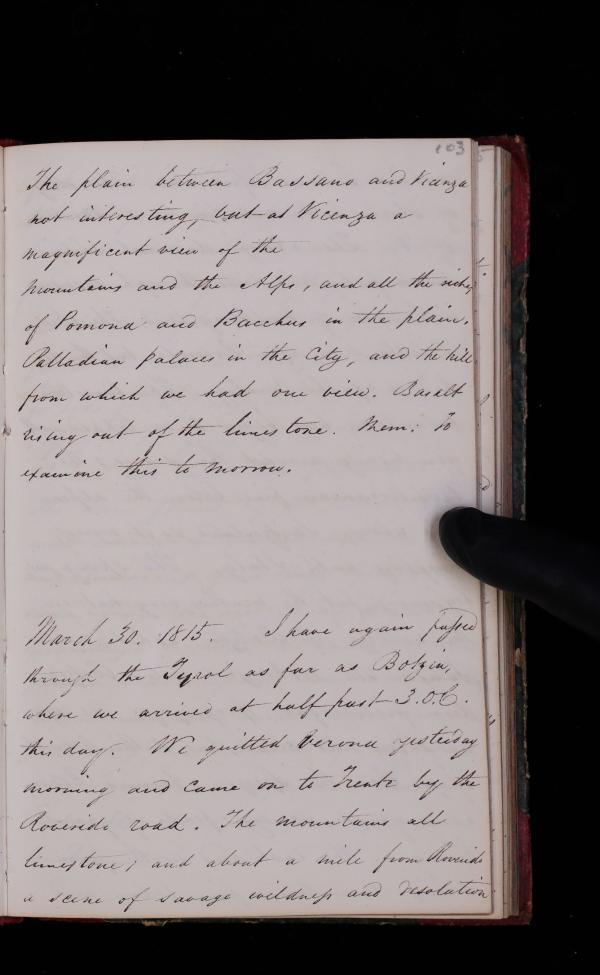 103
The plain between Bassano and Vicenza
not interesting, but at Vicenza a
magnificent view of the
mountains and the Alps, and all the riches
of Pomona and Bacchus in the plain.
Palladian palaces in the City, and the hill
from which we had our view. Basalt
rising out of the limestone. Mem: To
examine this to morrow.
March 30. 1815. I have again passed
through the Tyrol as far as Botzin,
where we arrived at half past 3.O.C.
this day. We quitted Verona yesterday
morning and came on to Trente by the
Roveride road. The mountains all
limestone; and about a mile from Roveride
a scene of savage wildness and desolation